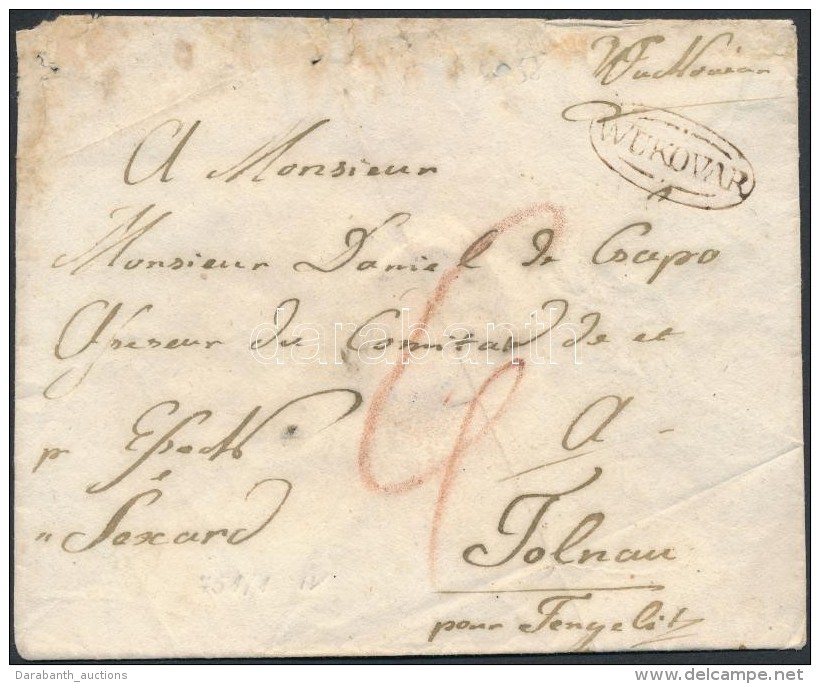 Wukovar
WUKOVAR
A Monsieur
Monsieur Daniel de Csapo
du Comitat de et
A
pr Esseck
" Sexard
Tolnau
pour Tengelitz
darabanth
Darabanth_auctions
delcampe.net